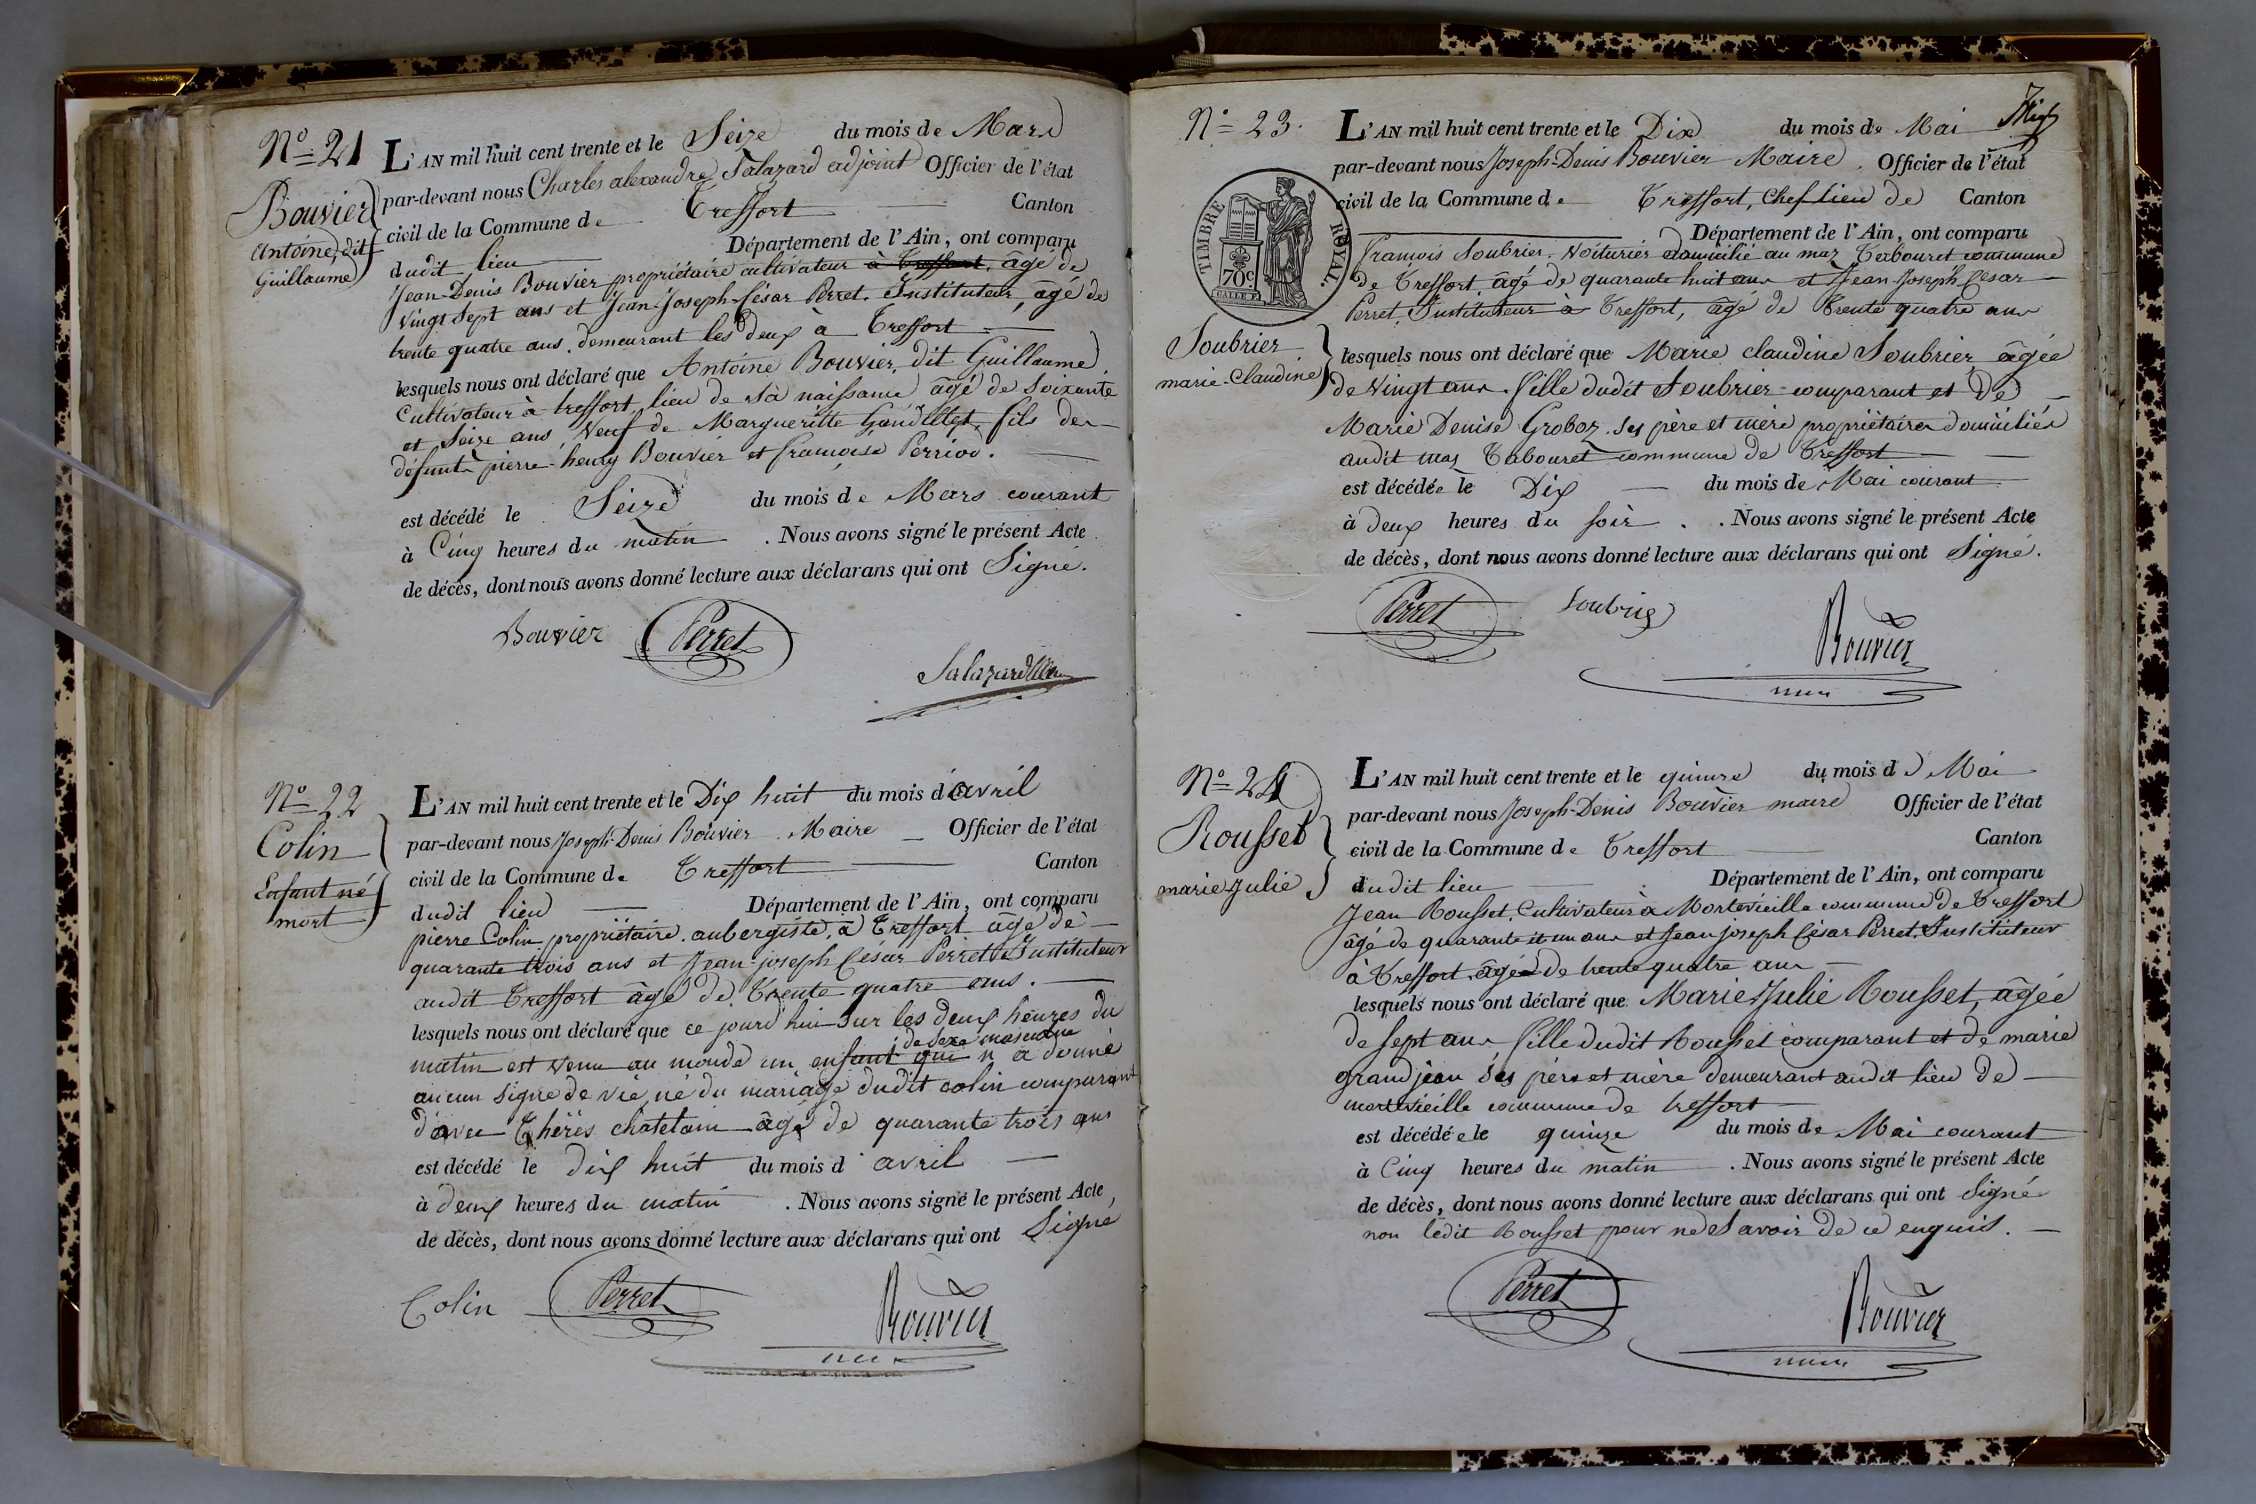 N° 21
Bouvier
Antoine, dit
Guillaume
L'AN mil huit cent trente et le Seize du mois de Mars
par-devant nous Charles alexandre Salazard adjoint Officier de l'état
civil de la Commune de Treffort Canton
dudit lieu Département de l'Ain, ont comparu
Jean-Denis Bouvier propriétaire cultivateur à Treffort, âgé de
vingt sept ans et Jean-Joseph-César Perret. Instituteur, âgé de
trente quatre ans. demeurant les deux à Treffort
lesquels nous ont déclaré que Antoine Bouvier, dit Guillaume,
Cultivateur à treffort lieu de sa naissance âgé de soixante
et seize ans, veuf de Margueritte fils de
défunts pierre-henry Bouvier et françoise Perriod.
est décédé le Seize du mois de Mars courant
à Cinq heures du matin. Nous avons signé le présent Acte
de décès, dont nous avons donné lecture aux déclarans qui ont Signé.
Bouvier Perret
Salazard
N° 22
Colin
Enfant né
mort
L'AN mil huit cent trente et le Dix huit du mois d'avril
par-devant nous Joseph-Denis Bouvier Maire Officier de l'état
civil de la Commune de Treffort Canton
dudit lieu Département de l'Ain, ont comparu
pierre Colin propriétaire. aubergiste, à Treffort âgé de
quarante trois ans et Jean-joseph César Perret Instituteur
audit Treffort âgé de Trente quatre ans.
lesquels nous ont déclaré que ce jourd'hui sur les deux heures du
de sexe masculin
matin est venu au monde un enfant qui n'a donné
aucun signe de vie, né du mariage dudit colin comparant
d'avec Thérès chatelain âgé de quarante trois ans
est décédé le dix huit du mois d'avril
à deux heures du matin. Nous avons signé le présent Acte,
de décès, dont nous avons donné lecture aux déclarans qui ont Signé
Colin Perret Bouvier
N° 23.
TIMBRE ROYAL.
70c
Soubrier
marie-Claudine
L'AN mil huit cent trente et le Dix du mois de Mai
par-devant nous Joseph-Denis Bouvier Maire. Officier de l'état
civil de la Commune de Treffort, Chef lieu de Canton
Département de l'Ain, ont comparu
françois Soubrier. Voiturier domicilié au maz Tabouret commune
de Treffort, âgé de quarante huit ans et Jean-Joseph César
Perret, Instituteur à Treffort, âgé de Trente quatre ans
lesquels nous ont déclaré que Marie claudine Soubrier, âgée
de vingt ans. fille dudit Soubrier comparant et de
Marie Denise Groboz. ses père et mère propriétaires domiciliés
audit mas Tabouret commune de Treffort
est décédée le Dix du mois de Mai courant
à deux heures du soir. Nous avons signé le présent Acte
de décès, dont nous avons donné lecture aux déclarans qui ont Signé.
Perret Soubrier Bouvier
N° 24
Rousset
marie Julie
L'AN mil huit cent trente et le quinze du mois de Mai
par-devant nous Joseph-Denis Bouvier maire Officier de l'état
civil de la Commune de Treffort Canton
dudit lieu Département de l'Ain, ont comparu
Jean Rousset, Cultivateur à Mortevieille commune de Treffort
âgé de quarante et un ans et Jean Joseph César Perret, Instituteur
à Treffort, âgé de trente quatre ans
lesquels nous ont déclaré que Marie Julie Rousset, âgée
de sept ans fille dudit Rousset comparant et de marie
grandjean ses père et mère demeurant audit lieu de
mortevieille commune de treffort
est décédée le quinze du mois de Mai courant
à Cinq heures du matin. Nous avons signé le présent Acte
de décès, dont nous avons donné lecture aux déclarans qui ont Signé
non ledit Rousset pour ne Savoir de ce enquis.
Perret Bouvier